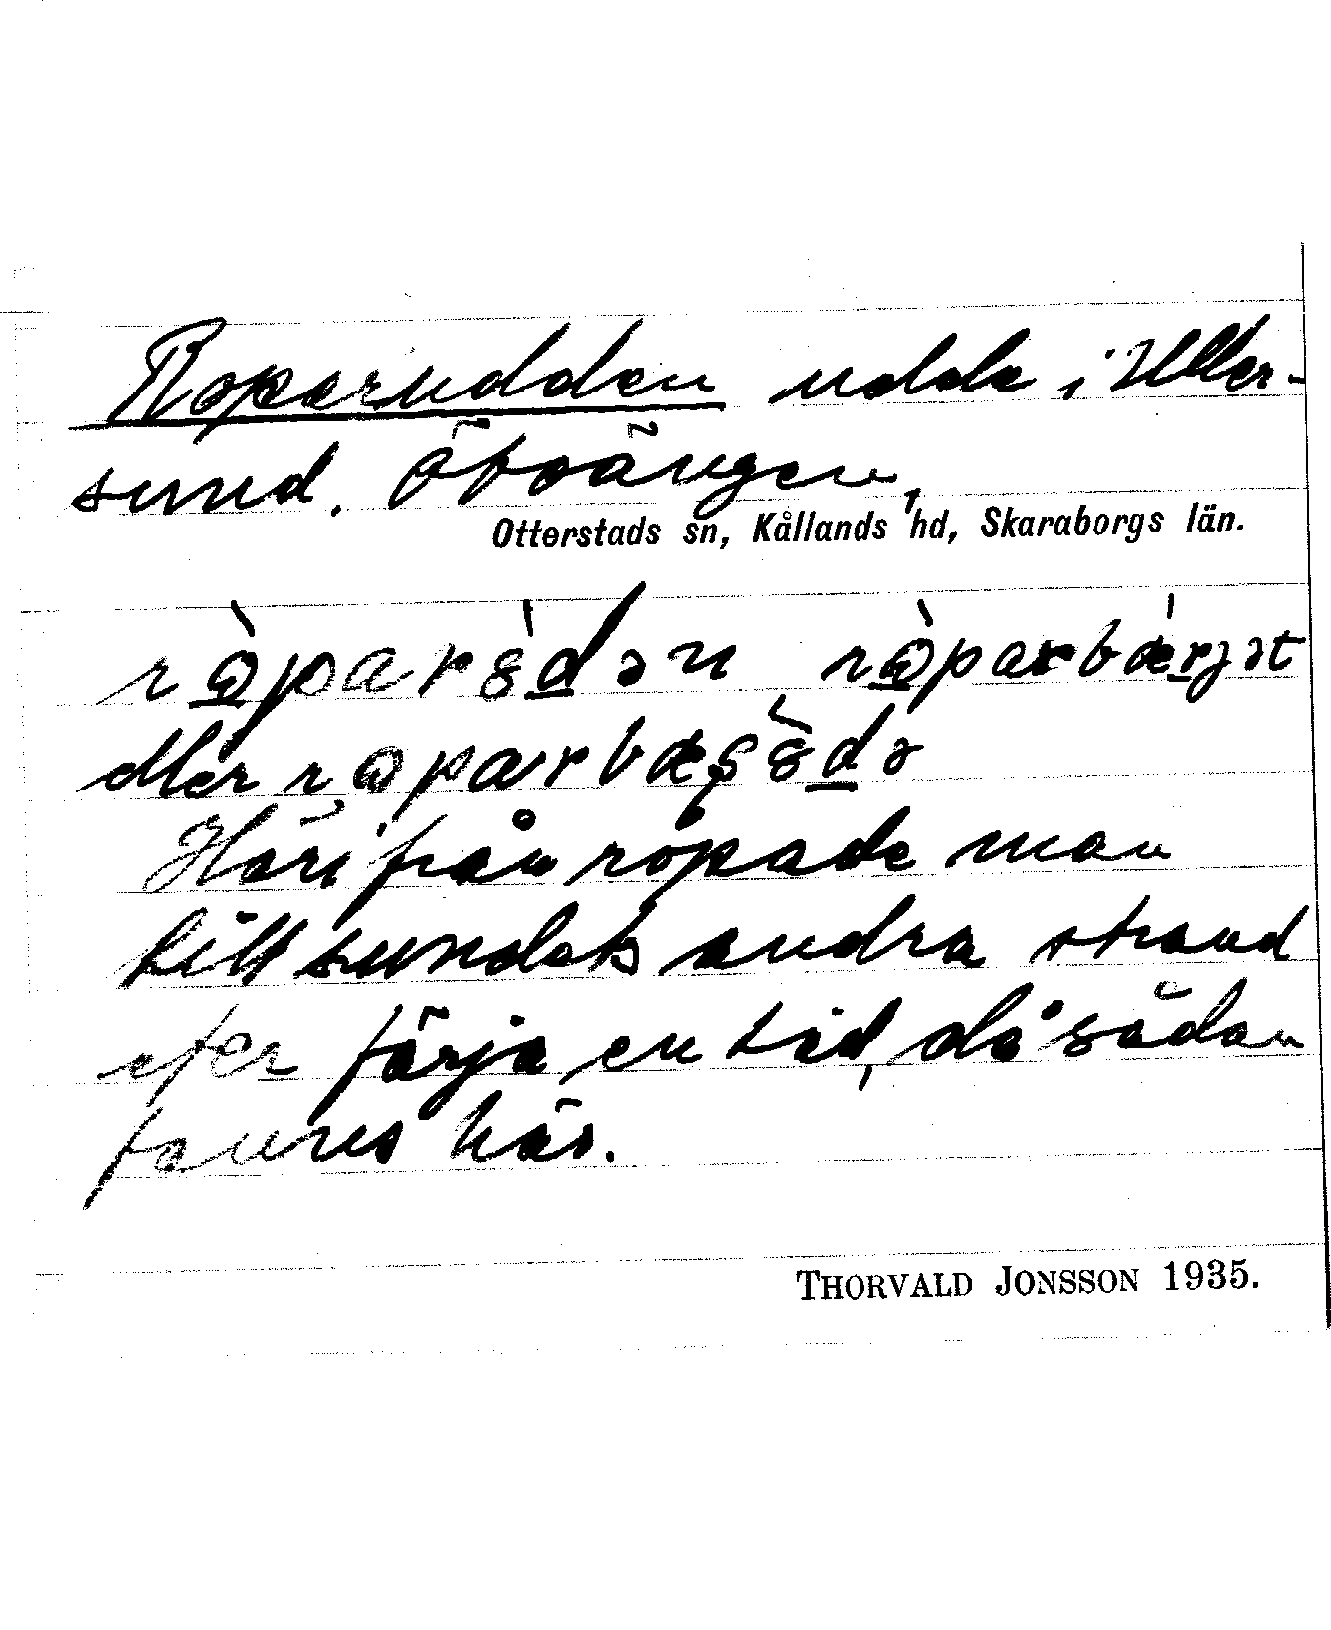 Roparudden udde i Uller-
sund. Öboängen,
Otterstads sn, Kållands hd, Skaraborgs län.
eller
Härifrån ropade man
till sundets andra strand
efter färja en tid, då sådan
fanns här.
THORVALD JONSSON 1935.